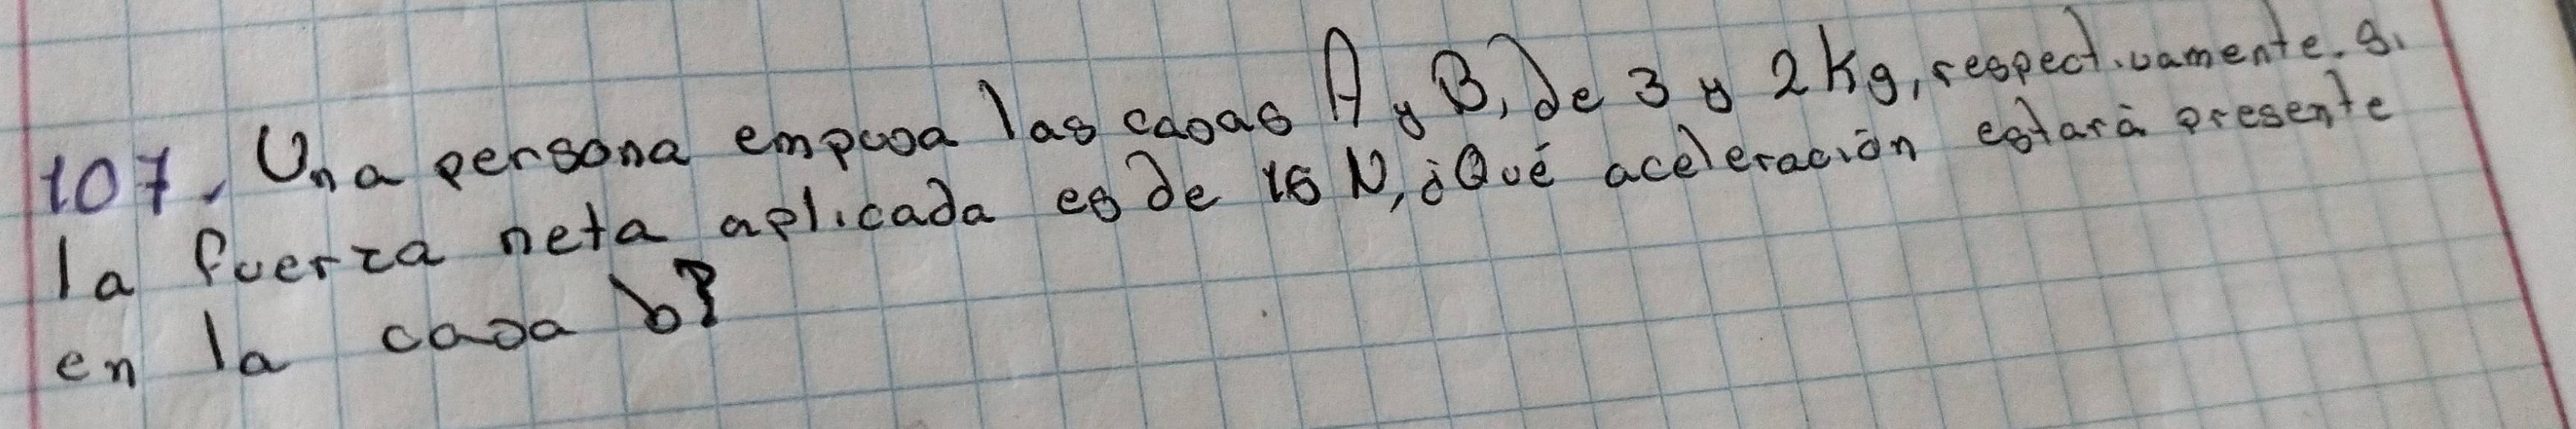 107. Una persona empuja las cajas A y B, de 3 y 2 kg, respectivamente. Si
la fuerza neta aplicada es de 15 N, ¿Qué aceleración estará presente
en la caja b?